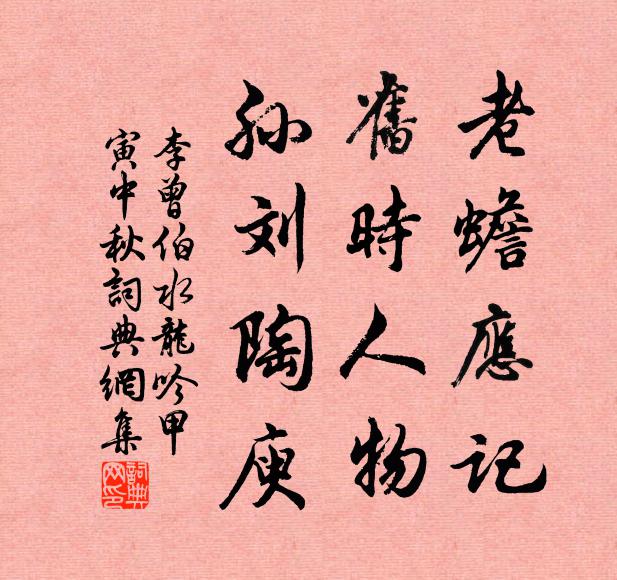 老蟾應記
舊時人物
孙刘陶庾
李曾伯水龍吟甲
寅中秋詞典網集
詞典网印